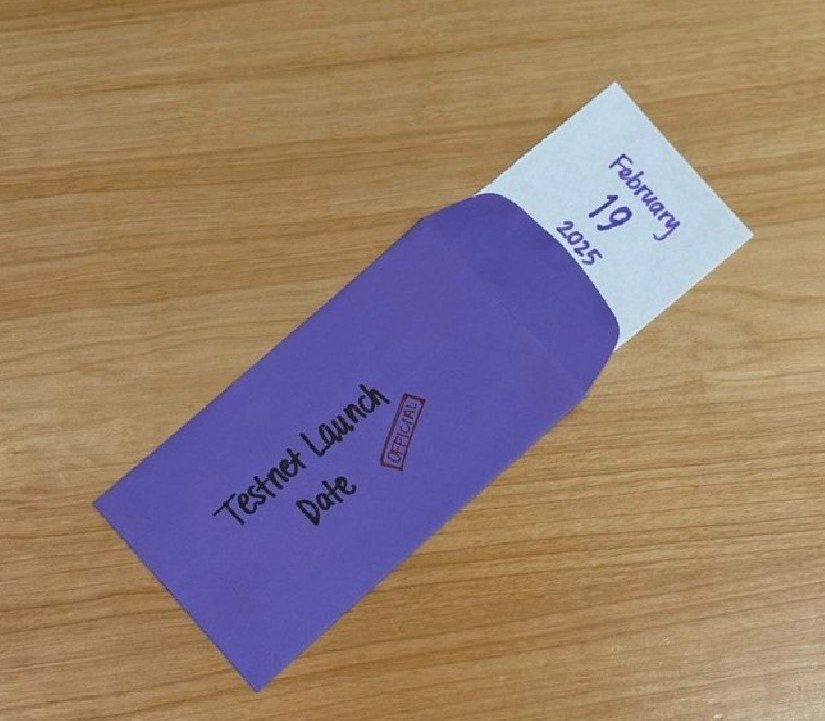 February
19
2025
Testnet Launch
Date
OFFICIAL